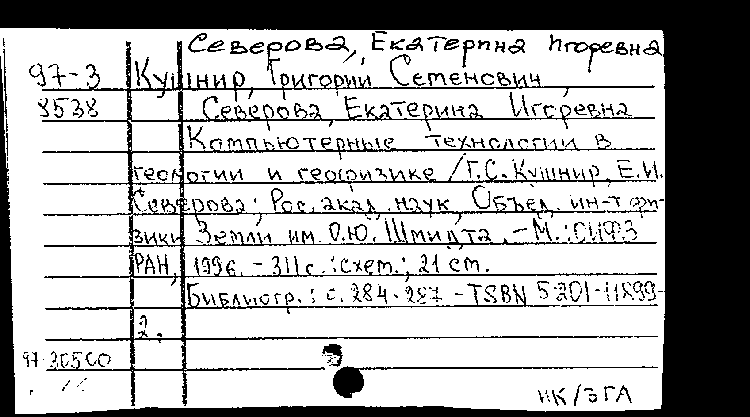 Северова, Екатерина Игоревна
97-3 Кушнир, Григорий Семенович,
8538 Северова, Екатерина Игоревна
Компьютерные технологии в
геологии и геофизике / Г.С. Кушнир, Е.И.
Северова; Рос. акад. наук, Объед. ин-т фи-
зики Земли им. О.Ю. Шмидта. - М.: ОИФЗ
РАН, 1996. - 311 с.: схем.; 21 см.
Библиогр.: с. 284-287 - ISBN 5-201-11899-
2.
97-30500
НК/ЗГА